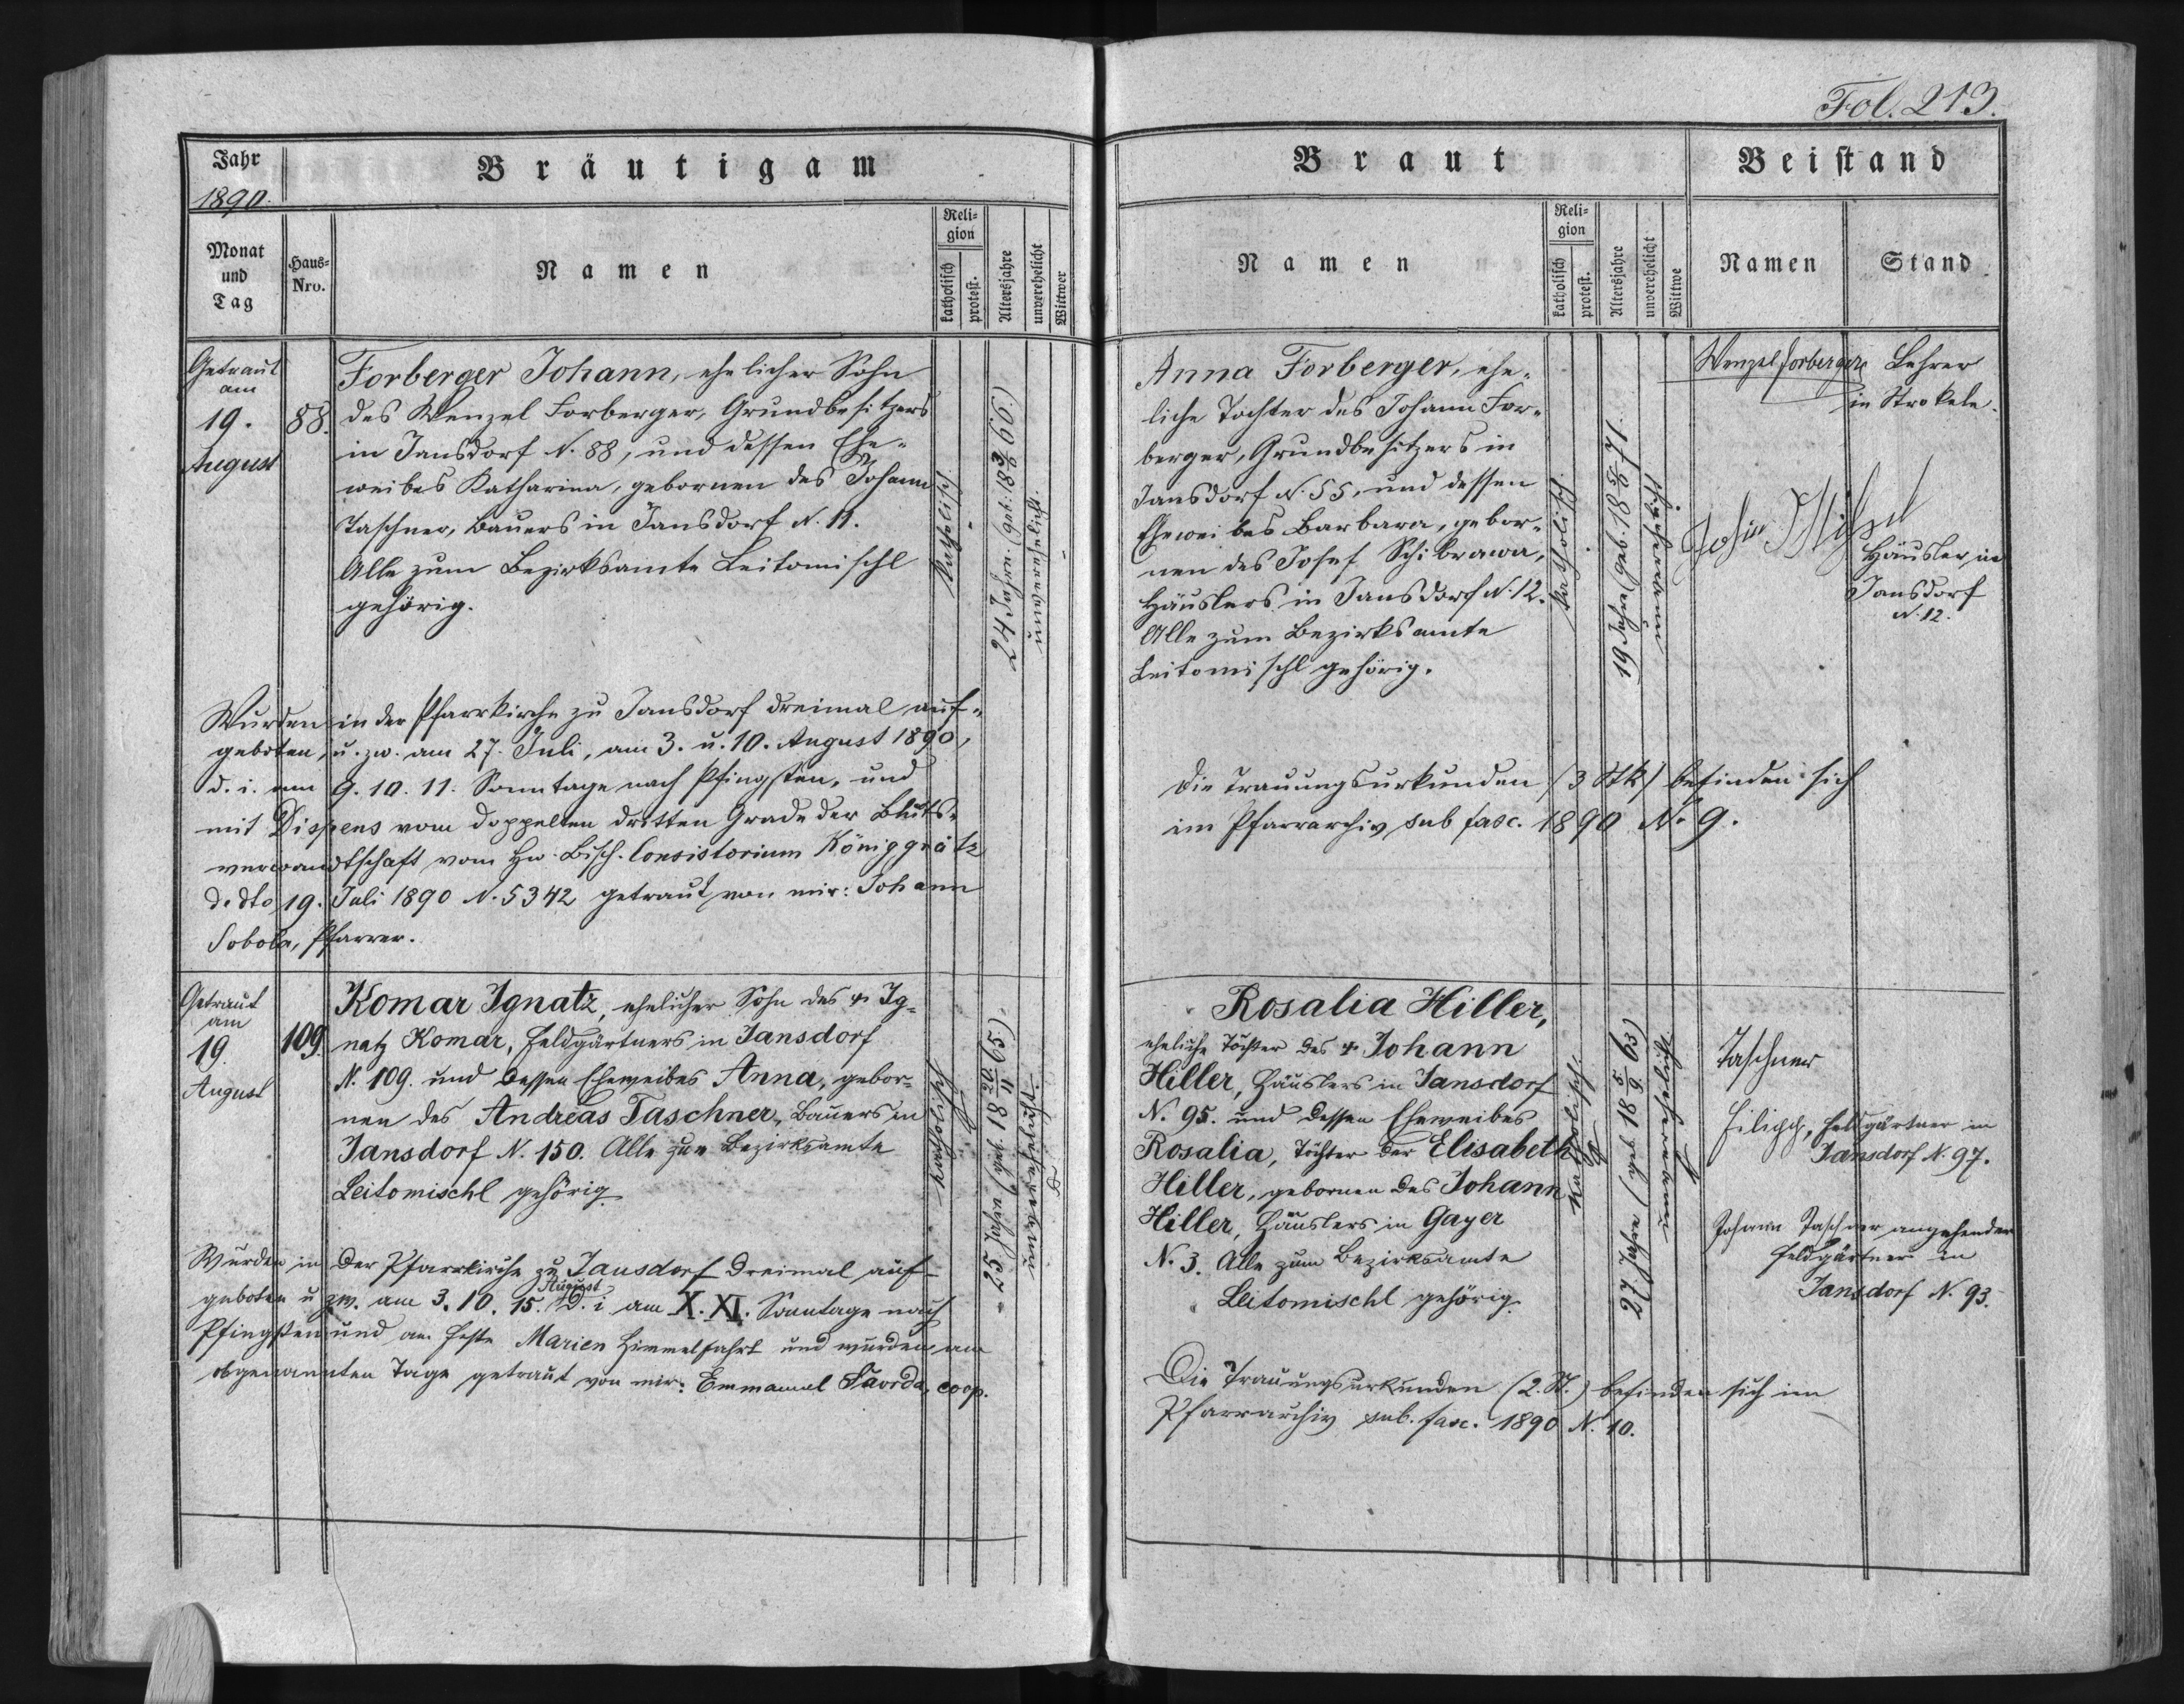 Fol. 213.
Jahr
1890.
Bräutigam
Monat
und
Tag
Haus-
Nro.
Namen
Reli-
gion
katholisch
protest.
Altersjahre
unverehelicht
Wittwer
Braut
Beistand
Namen
Reli-
gion
katholisch
protest.
Altersjahre
unverehelicht
Wittwe
Namen
Stand
Getraut
am
19.
August
88.
Forberger Johann, ehelicher Sohn
des Wenzel Forberger, Grundbesitzers
in Jansdorf N. 88, und dessen Ehe-
weibes Katharina, gebornen des Johann
Taschner, Bauers in Jansdorf N. 11.
Alle zum Bezirksamte Leitomischl
gehörig.
katholisch.
24 Jahre (geb. 18 3/6 66.)
unverehelicht.
Wurden in der Pfarrkirche zu Jansdorf dreimal auf-
geboten, u. zw. am 27. Juli, am 3. u. 10. August 1890,
d. i. am 9. 10. 11. Sonntage nach Pfingsten, und
mit Dispens vom doppelten dritten Grade der Bluts-
verwandtschaft vom Hw. Bisch. Consistorium Königgrätz
de dto 19. Juli 1890 N. 5342 getraut von mir: Johann
Sobola, Pfarrer.
Anna Forberger, ehe-
liche Tochter des Johann For-
berger, Grundbesitzers in
Jansdorf N. 55, und dessen
Eheweibes Barbara, gebor-
nen des Josef Schibrawa,
Häuslers in Jansdorf N. 12.
Alle zum Bezirksamte
Leitomischl gehörig.
katholisch.
19 Jahre (geb. 18 71.
unverehelicht
Wenzel Forberger Lehrer
in Strokele.
Häusler in
Jansdorf
N. 12.
Die Trauungsurkunden /3 Stk/ befinden sich
im Pfarrarchiv sub fasc. 1890 No 9.
Getraut
am
19.
August
109.
Komar Ignatz, ehelicher Sohn des + Ig-
natz Komar, Feldgärtners in Jansdorf
N. 109. und dessen Eheweibes Anna, gebor-
nen des Andreas Taschner, Bauers in
Jansdorf N. 150. Alle zum Bezirksamte
Leitomischl gehörig.
katholisch
25 Jahre (geb. 18 20/11 65)
unverehelicht.
Wurden in der Pfarrkirche zu Jansdorf dreimal auf-
geboten u. zw. am 3. 10. 15. August d. i. am X. XI. Sonntage nach
Pfingsten und am Feste Marien Himmelfahrt und wurden am
obgenannten Tage getraut von mir: Emmanuel coop.
Rosalia Hiller,
eheliche Tochter des + Johann
Hiller, Häuslers in Jansdorf
N. 95. und dessen Eheweibes
Rosalia, Tochter der Elisabeth
Hiller, gebornen des Johann
Hiller, Häuslers in Gayer
N. 3. Alle zum Bezirksamte
Leitomischl gehörig.
katholisch.
27 Jahre (geb. 18 5/9 63)
unverehelicht.
Taschner
Filipp, Feldgärtner in
Jansdorf N. 97.
Johann Taschner angehender
Feldgärtner in
Jansdorf N. 93.
Die Trauungsurkunden (2. St.) befinden sich im
Pfarrarchiv sub. fasc. 1890 N. 10.